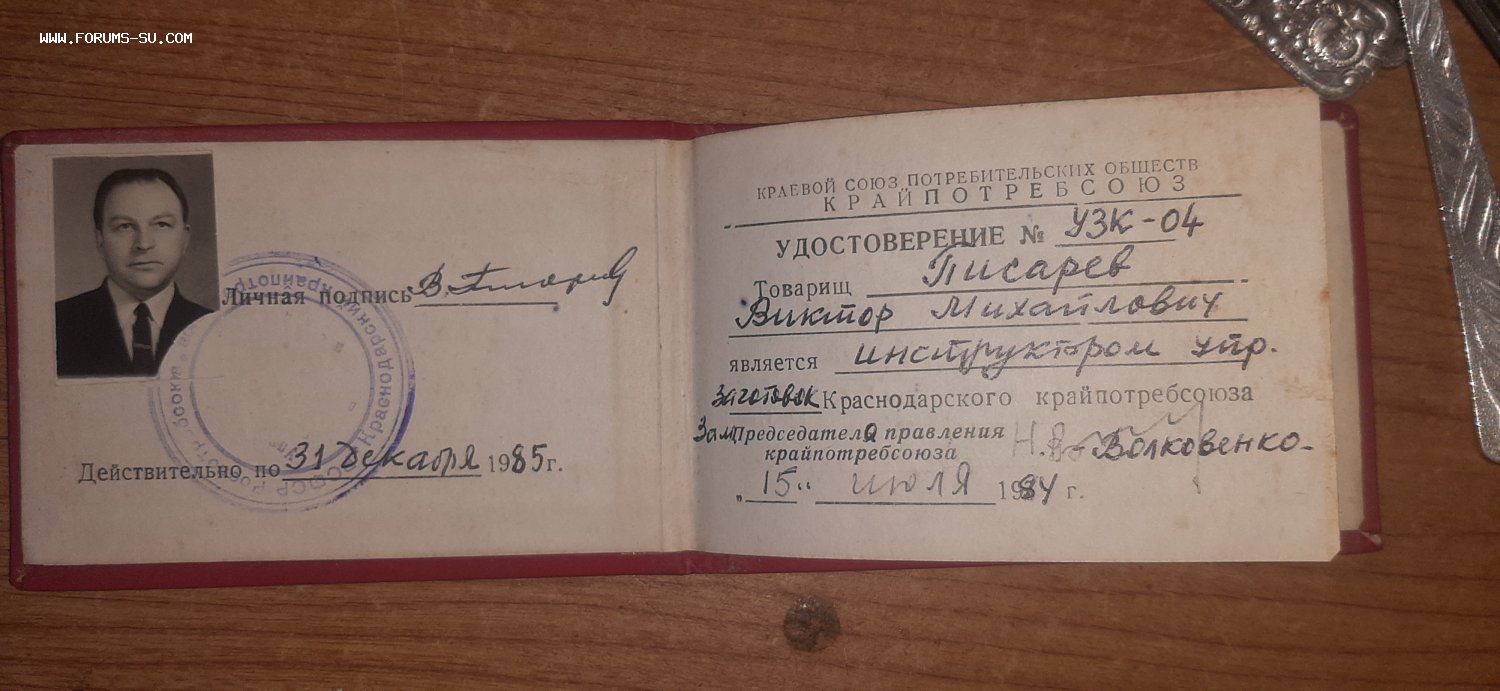 WWW.FORUMS-SU.COM
Личная подпись
Действительно по 31 декабря 1985 г.
КРАЕВОЙ СОЮЗ ПОТРЕБИТЕЛЬСКИХ ОБЩЕСТВ
КРАЙПОТРЕБСОЮЗ
УДОСТОВЕРЕНИЕ № УЗК-04
Товарищ Писарев
Виктор Михайлович
является инструктором упр.
заготовок Краснодарского крайпотребсоюза
Зам. Председателя правления Волковенко
крайпотребсоюза
„15" июля 1984 г.